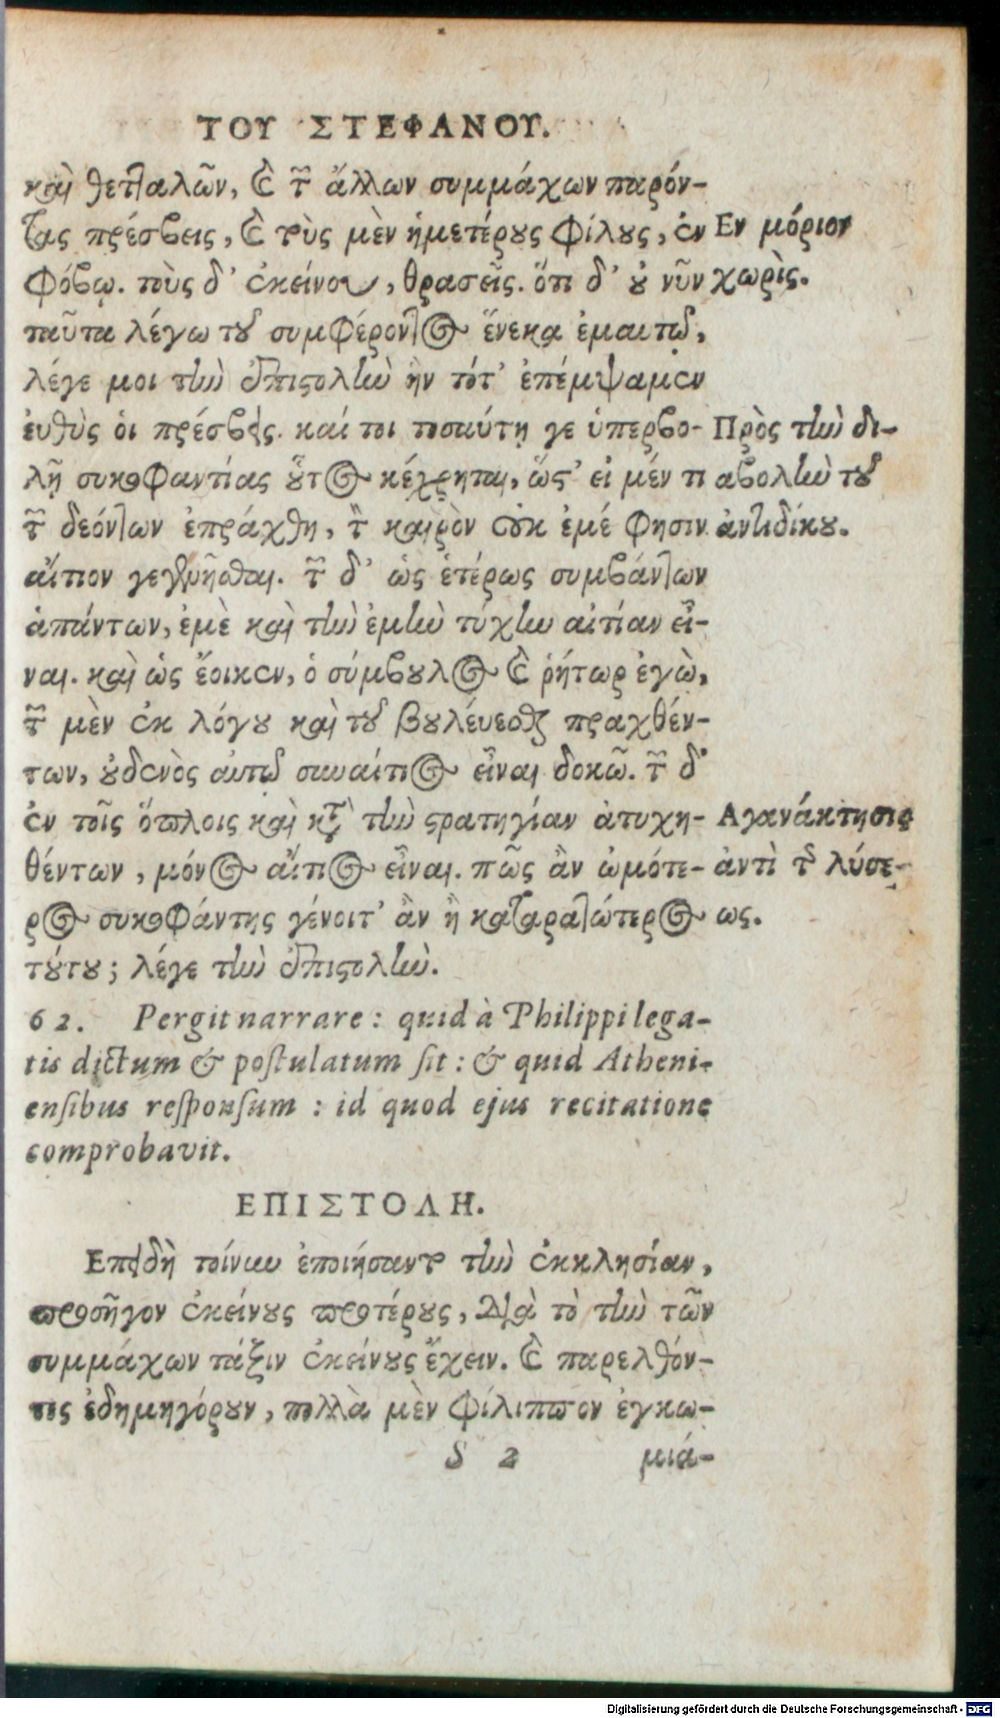 ΤΟΥ ΣΤΕΦΑΝΟΥ.
καὶ θετταλῶν, καὶ τῶν ἄλλων συμμάχων παρόν-
τας πρέσβεις, καὶ τοὺς μὲν ἡμετέρους φίλους, ἐν
φόβῳ. τοὺς δ' ἐκείνου, θρασεῖς. ὅτι δ' οὐ νῦν
ταῦτα λέγω τοῦ συμφέροντος ἕνεκα ἐμαυτῷ,
λέγε μοι τὴν ἐπιστολὴν ἣν τότ' ἐπέμψαμεν
ἐυθὺς οἱ πρέσβεις. καί τοι τοσαύτῃ γε ὑπερβο-
λῇ συκοφαντίας οὗτος κέχρηται, ὥστ' εἰ μέν τι
τῶν δεόντων ἐπράχθη, τὸν καιρὸν οὐκ ἐμέ φησιν
αἴτιον γεγενῆσθαι. τῶν δ' ὡς ἑτέρως συμβάντων
ἁπάντων, ἐμὲ καὶ τὴν ἐμὴν τύχην αἰτίαν εἶ-
ναι. καὶ ὡς ἔοικεν, ὁ σύμβουλος καὶ ῥήτωρ ἐγὼ,
τῶν μὲν ἐκ λόγου καὶ τοῦ βουλεύεσθαι πραχθέν-
των, οὐδενὸς αὐτῷ συναίτιος εἶναι δοκῶ. τῶν δ'
ἐν τοῖς ὅπλοις καὶ κατὰ τὴν στρατηγίαν ἀτυχη-
θέντων, μόνος αἴτιος εἶναι. πῶς ἂν ὠμότε-
ρος συκοφάντης γένοιτ' ἂν ἢ καταρατώτερος
τούτου; λέγε τὴν ἐπιστολὴν.
Εν μόριον
χωρὶς.
Πρὸς τὴν δι-
αβολὴν τοῦ
ἀντιδίκου.
Αγανάκτησις
ἀντὶ τῆς λύσε-
ως.
62. Pergit narrare: quid à Philippi lega-
tis dictum & postulatum sit: & quid Atheni-
ensibus responsum: id quod ejus recitatione
comprobavit.
ΕΠΙΣΤΟΛΗ.
Επειδὴ τοίνυν ἐποιήσαντο τὴν ἐκκλησίαν,
προσῆγον ἐκείνους προτέρους, διὰ τὸ τὴν τῶν
συμμάχων τάξιν ἐκείνους ἔχειν. καὶ παρελθόν-
τες ἐδημηγόρουν, πολλὰ μὲν φίλιππον ἐγκω-
S 2 μιά-
Digitalisierung gefördert durch die Deutsche Forschungsgemeinschaft - DFG